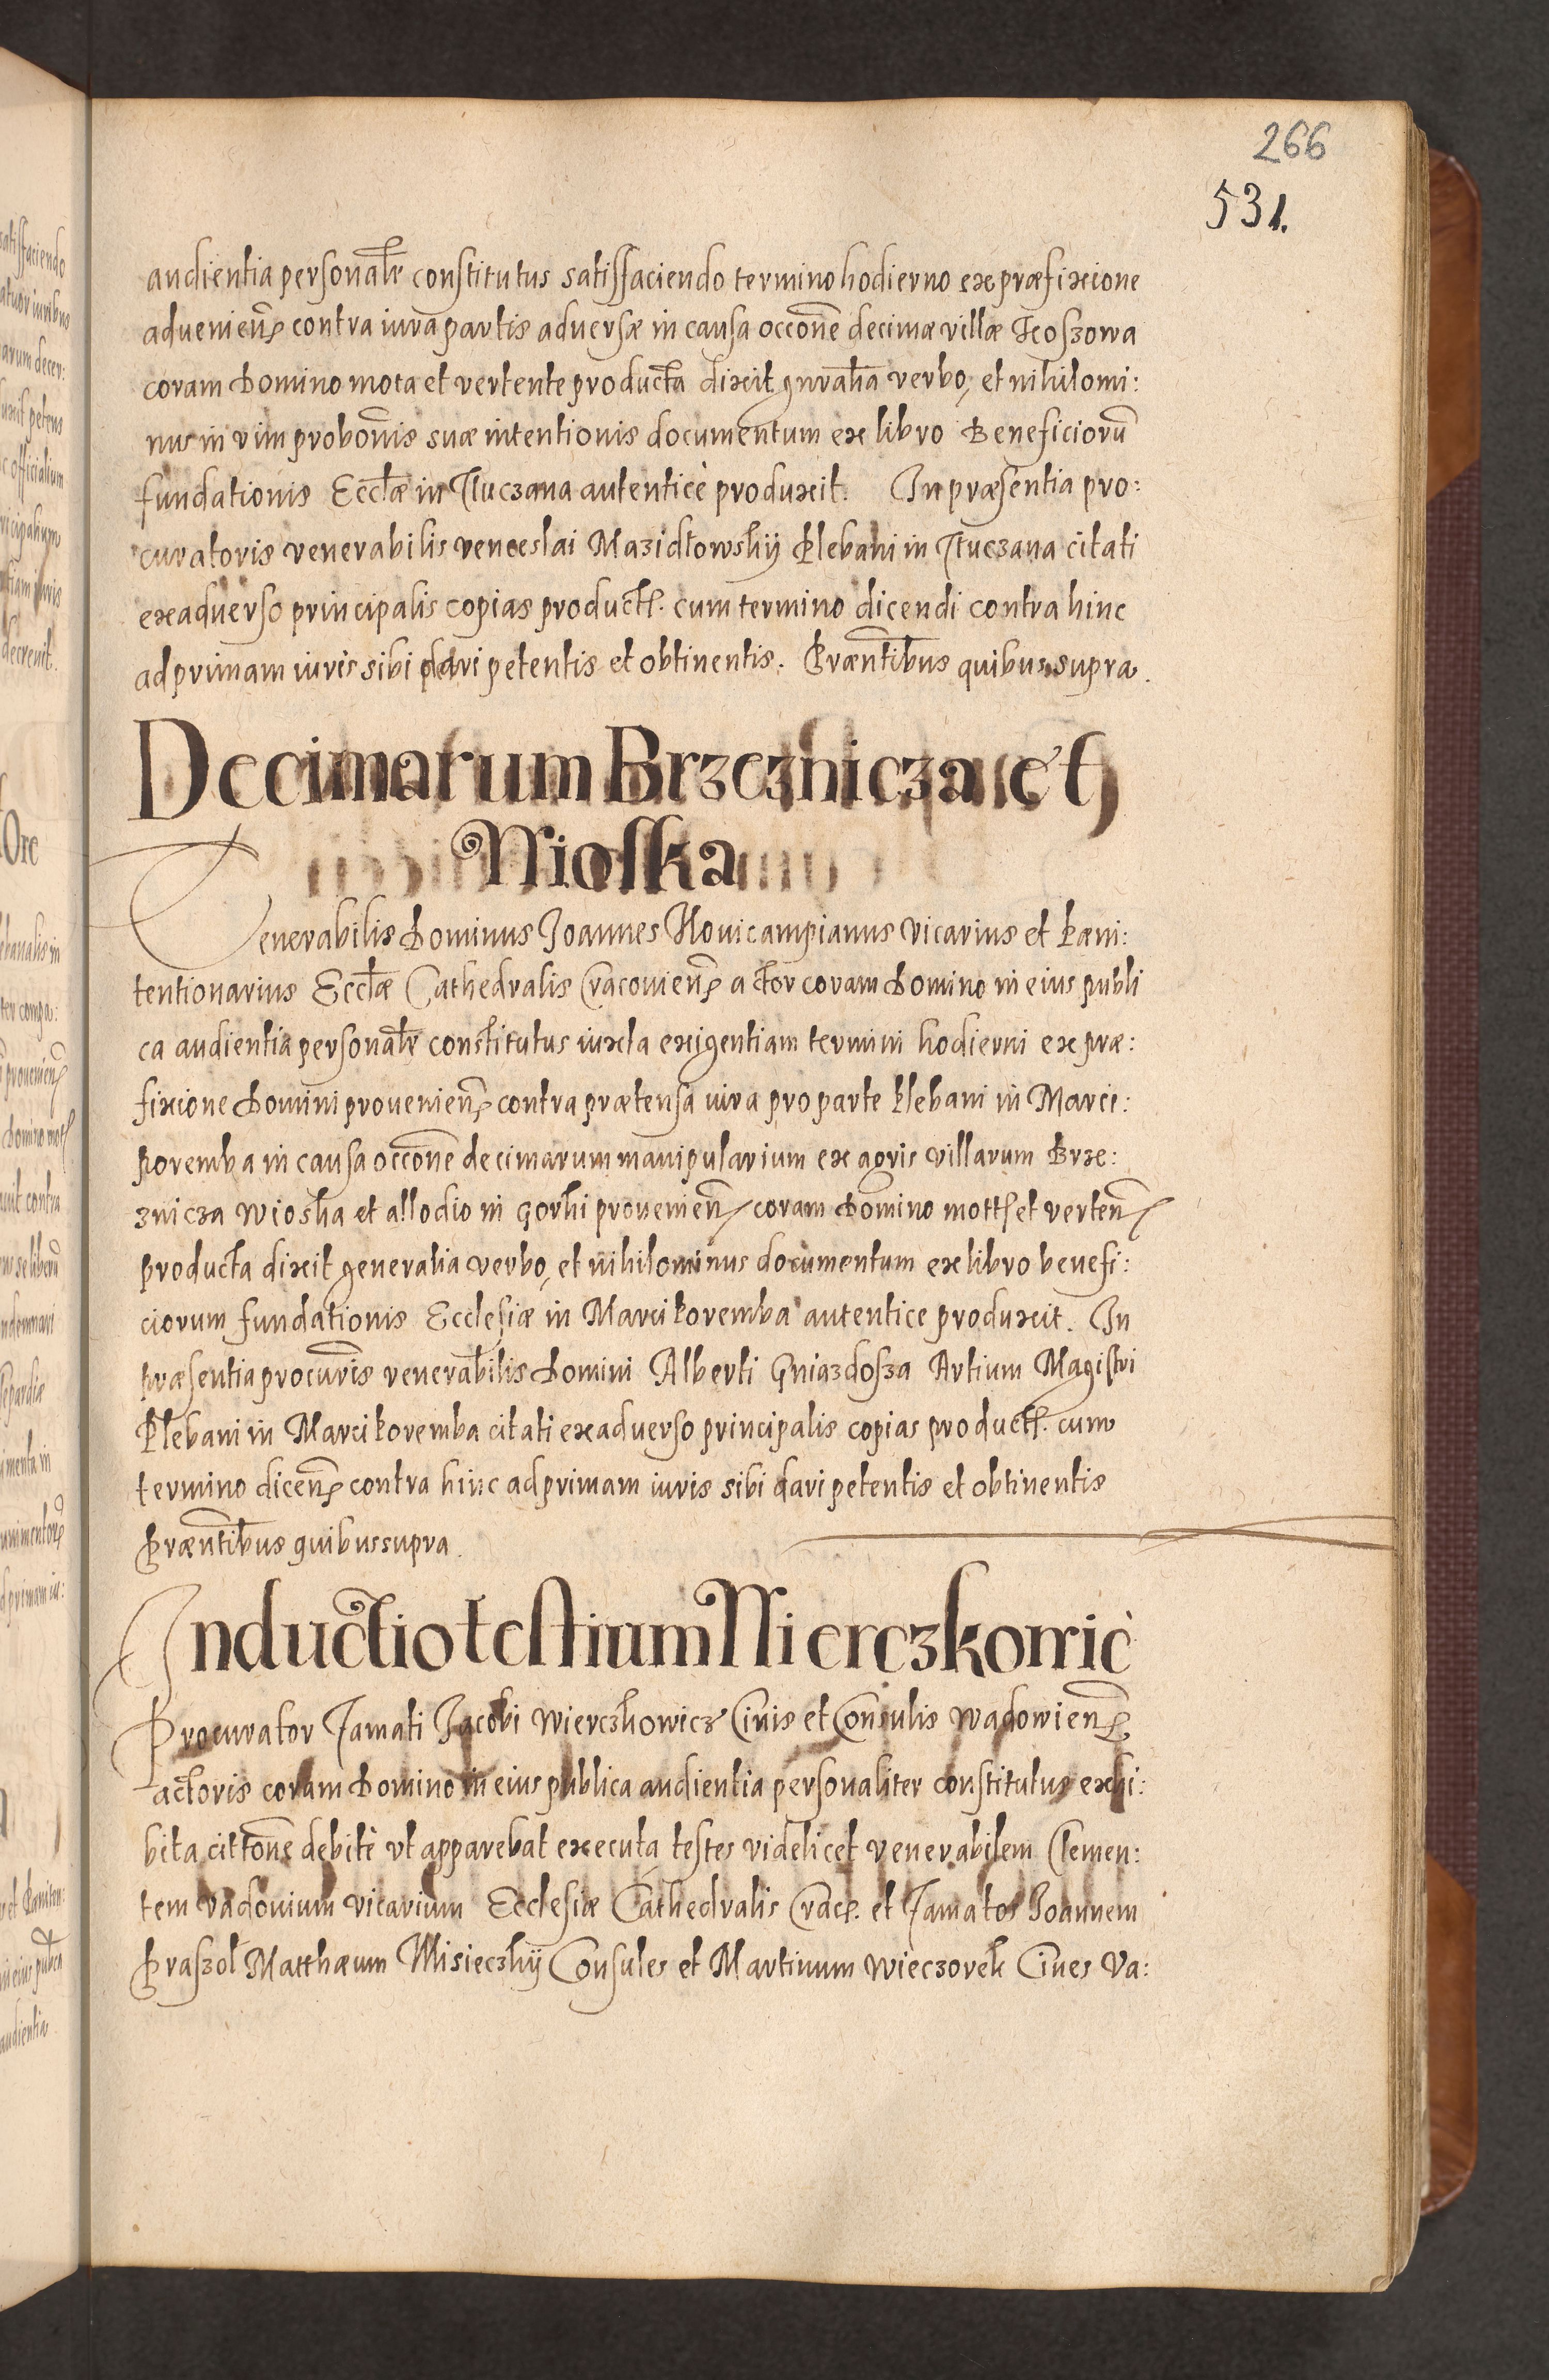 266
531.
audientia personalr̃ constitutus satisfaciendo termino hodierno ex præfixione
aduenieñ contra iura partis aduersæ in causa occone decimæ villæ Koszowa
coram Domino mota et vertente producta dixit gnralia verbo, et nihilomi:
nus in vim probonis suæ intentionis documentum ex libro Beneficiorũ
fundationis Ecctæ in Tluczana autenticè produxit. In præsentia pro:
curatoris venerabilis venceslai Mazidłowskÿ Plebani in Tluczana citati
exaduerso principalis copias product. cum termino dicendi contra hinc
ad primam iuris sibi dari petentis et obtinentis. Præntibus quibus supra.
Decimarum Brzeznicza et
Wioska
Venerabilis Dominus Joannes Nouicampianus vicarius et Pæni:
tentionarius Ecctæ Cathedralis Cracouieñ actor coram Domino in eius publi
ca audientia personalr̃ constitutus iuxta exigentiam termini hodierni ex præ:
fixione Domini prouenieñ contra prætensa iura pro parte Plebani in Marci:
poremba in causa occone decimarum manipularium ex agris villarum Brze:
znicza Wioska et allodio in Gorki prouenieñ coram Domino mott et verteñ
producta dixit generalia verbo, et nihilominus documentum ex libro benefi:
ciorum fundationis Ecclesiæ in Marcikoremba autentice produxit. In
præsentia procuris venerabilis Domini Alberti Gniazdosza Artium Magistri
Plebani in Marcikoremba citati exaduerso principalis copias product. cum
termino diceñ contra hinc ad primam iuris sibi dari petentis et obtinentis
Præntibus quibus supra.
Inductio testium Wierczkowic
Procurator Famati Jacobi Wierczkowicz Ciuis et Consulis Wadowieñ
actoris coram Domino in eius publica audientia personaliter constitutus exhi:
bita cittone debitè vt apparebat executa testes videlicet venerabilem Clemen:
tem Vadouium vicarium Ecclesiæ Cathedralis Crac. et Famatos Joannem
Praszoł Matthæum Misieczkÿ Consules et Martinum Wieczorek Ciues Va: